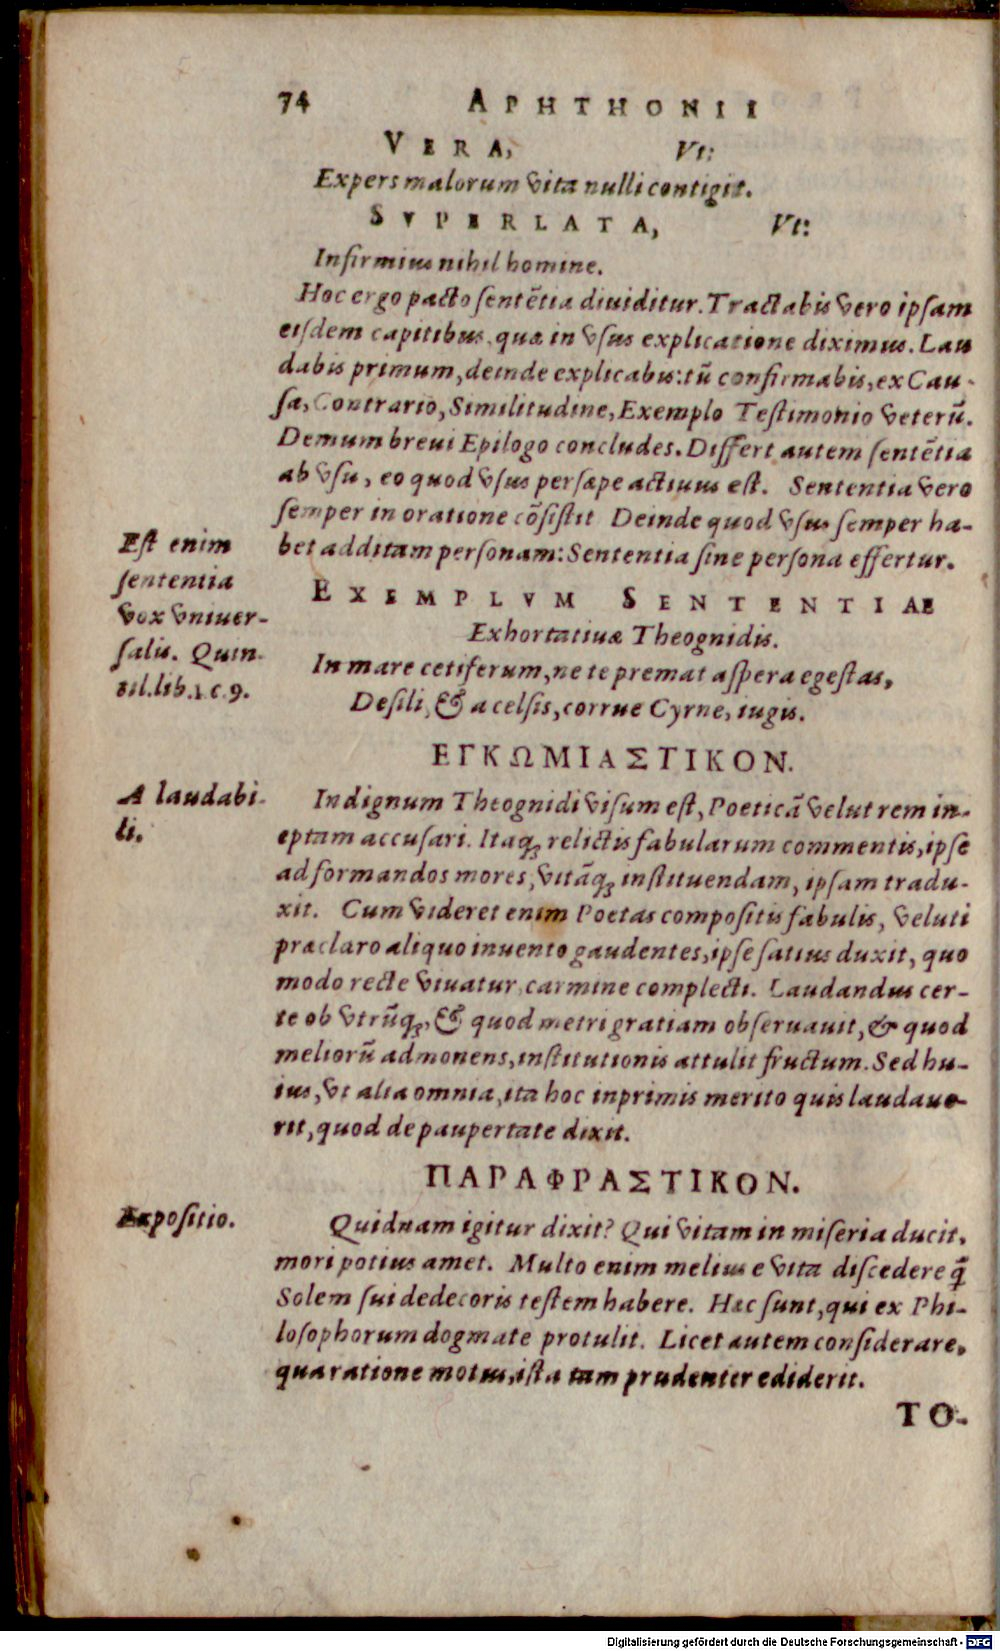 74 APHTHONII
VERA, Vt:
Expers malorum vita nulli contigit.
SVPERLATA, Vt:
Infirmius nihil homine.
Hoc ergo pacto sentētia diuiditur. Tractabis vero ipsam
eisdem capitibus, quæ in vsus explicatione diximus. Lau
dabis primum, deinde explicabis: tū confirmabis, ex Cau-
sa, Contrario, Similitudine, Exemplo Testimonio veterū.
Demum breui Epilogo concludes. Differt autem sentētia
ab vsu, eo quod vsus persæpe actiuus est. Sententia vero
semper in oratione cōsistit Deinde quod vsus semper ha-
bet additam personam: Sententia sine persona effertur.
Est enim
sententia
vox vniuer-
salis. Quin-
til.lib.1.c.9.
EXEMPLVM SENTENTIAE
Exhortatiuæ Theognidis.
In mare cetiferum, ne te premat aspera egestas,
Desili, & a celsis, corrue Cyrne, iugis.
ΕΓΚΩΜΙΑΣΤΙΚΟΝ.
A laudabi-
li.
Indignum Theognidi visum est, Poeticā velut rem in-
eptam accusari. Itaqꝫ relictis fabularum commentis, ipse
ad formandos mores, vitāqꝫ instituendam, ipsam tradu-
xit. Cum videret enim Poetas compositis fabulis, veluti
præclaro aliquo inuento gaudentes, ipse satius duxit, quo
modo recte viuatur, carmine complecti. Laudandus cer-
te ob vtrūqꝫ, & quod metri gratiam obseruauit, & quod
meliorū admonens, institutionis attulit fructum. Sed hu-
ius, vt alia omnia, ita hoc inprimis merito quis laudaue-
rit, quod de paupertate dixit.
ΠΑΡΑΦΡΑΣΤΙΚΟΝ.
Expositio.
Quidnam igitur dixit? Qui vitam in miseria ducit,
mori potius amet. Multo enim melius e vita discedere q̄
Solem sui dedecoris testem habere. Hæc sunt, qui ex Phi-
losophorum dogmate protulit. Licet autem considerare,
qua ratione motus, ista tam prudenter ediderit.
TO-
Digitalisierung gefördert durch die Deutsche Forschungsgemeinschaft - DFG